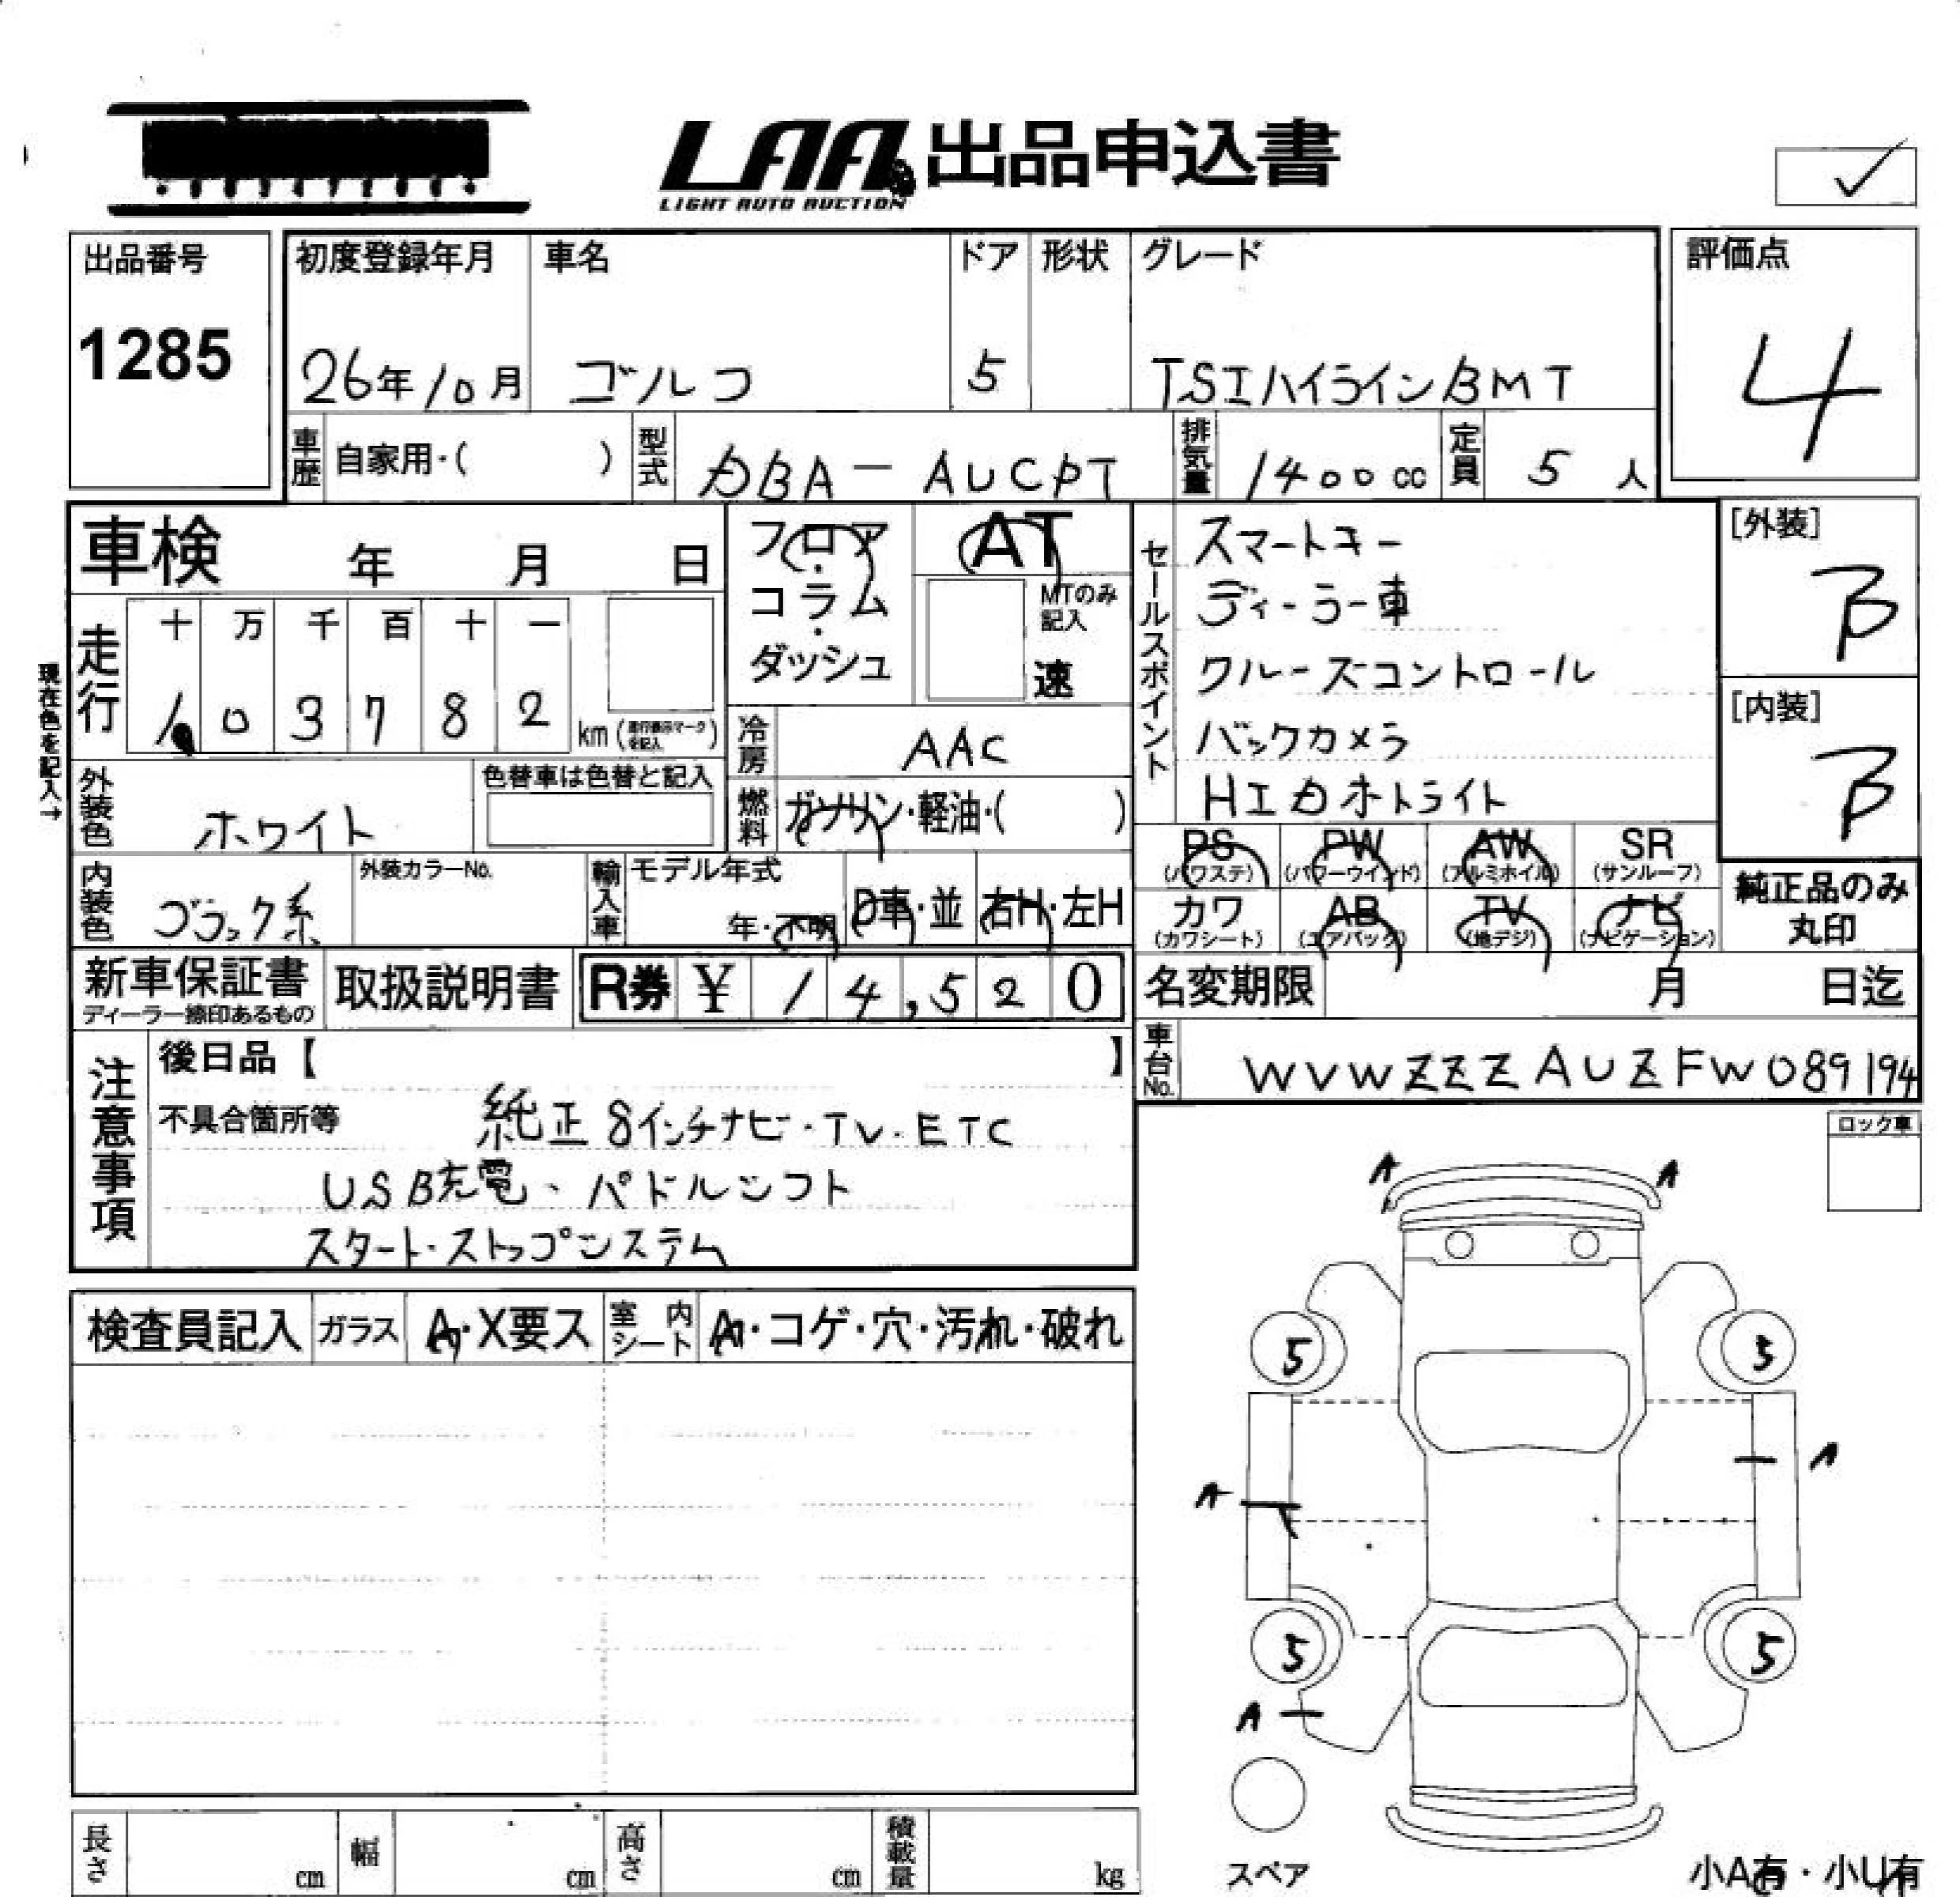 LAA 出品申込書
LIGHT AUTO AUCTION
出品番号
1285
初度登録年月
26年10月
車名
ゴルフ
ドア
5
形状
グレード
TSIハイラインBMT
評価点
4
車歴 自家用・( )
型式 DBA-AUCPT
排気量 1400cc
定員 5人
車検 年 月 日
フロア・コラム・ダッシュ
AT
MTのみ記入
速
セールスポイント
スマートキー
ディーラー車
クルーズコントロール
バックカメラ
HIDホトライト
[外装]
B
[内装]
B
現在色を記入→
走行
十 万 千 百 十 一
1 0 3 7 8 2 km
冷房 AAC
燃料 ガソリン・軽油・( )
外装色 ホワイト
色替車は色替と記入
内装色 ブラック系
外装カラーNo.
輸入車
モデル年式
年・不明
D車・並
右H・左H
PS (パワステ)
PW (パワーウインド)
AW (アルミホイル)
SR (サンルーフ)
カワ (カワシート)
AB (エアバック)
TV (地デジ)
ナビ (ナビゲーション)
純正品のみ丸印
新車保証書
ディーラー捺印あるもの
取扱説明書
R券 ¥ 14,520
名変期限 月 日迄
車台No. WVWZZZAUZFW089194
注意事項
後日品【 】
不具合箇所等
純正8インチナビ・TV・ETC
USB充電・パドルシフト
スタート・ストップシステム
ロック車
検査員記入
ガラス A・X要ス
室内シート A・コゲ・穴・汚れ・破れ
A A
5 5
A
A
5 5
A
スペア
小A有・小U有
長さ cm
幅 cm
高さ cm
積載量 kg